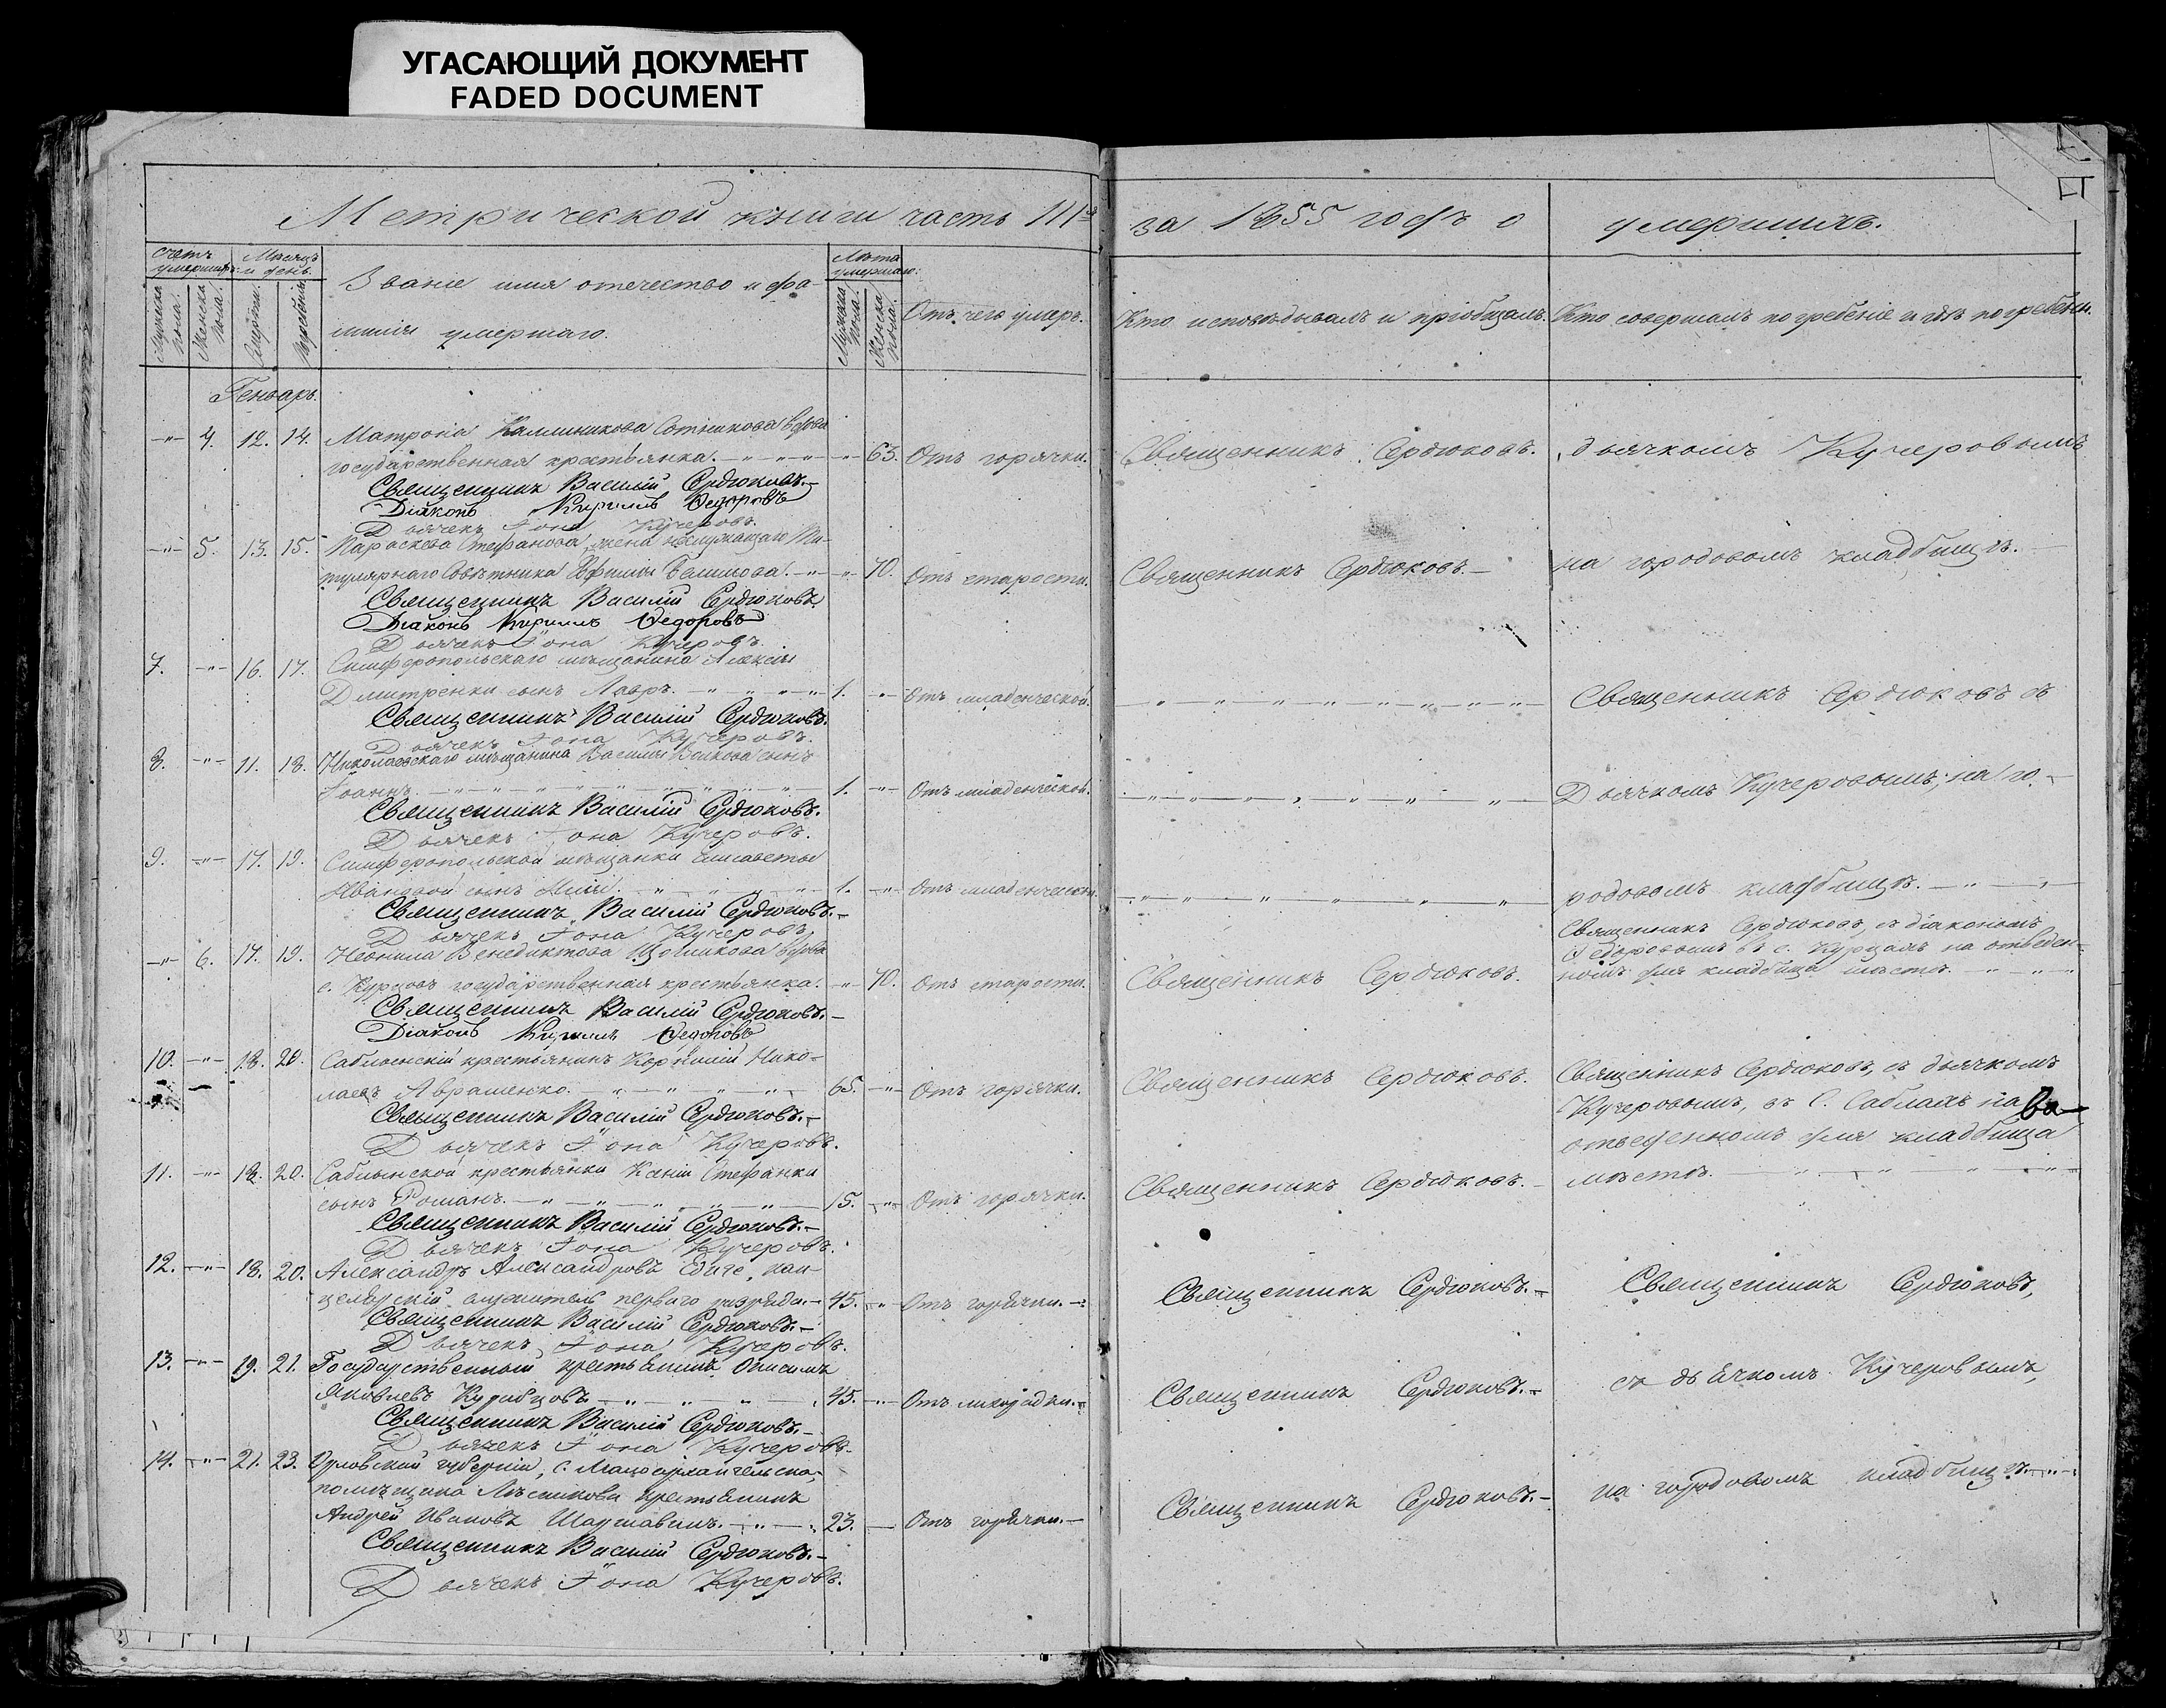 УГАСАЮЩИЙ ДОКУМЕНТ
FADED DOCUMENT
Метрической книги часть III я за 1855 годъ о умершихъ.
Счетъ умершихъ.
Мѣсяцъ и день.
Званіе имя отечество и фа-
милія умершаго.
Лѣта умершаго.
Отъ чего умеръ.
Кто исповѣдывалъ и пріобщалъ.
Кто совершалъ погребеніе и гдѣ погребены.
Мужеска пола.
Женска пола.
Смерти.
Погребенія.
Мужеска пола.
Женска пола.
Генварь.
-"- 4. 12. 14. Матрона Каллиникова Сотникова вдова
государственная крестьянка. -"- 63. Отъ горячки. Священникъ Сердюковъ. дьячкомъ Кучеровымъ
Священникъ Василій Сердюковъ.
Діаконъ Кириллъ Ѳедоровъ
Дьячекъ Іона Кучеровъ.
-"- 5. 13. 15. Параскева Стефанова, жена неслужащаго Ти-
тулярнаго Совѣтника -"- 70. Отъ старости. Священникъ Сердюковъ. на городовомъ кладбищѣ.
Священникъ Василій Сердюковъ
Діаконъ Кириллъ Ѳедоровъ
Дьячекъ Іона Кучеровъ.
7. -"- 16. 17. Симферопольскаго мѣщанина Алексія
Дмитренки сынъ Лавръ. 1. -"- Отъ младенческой. Священникъ Сердюковъ съ
Священникъ Василій Сердюковъ.
Дьячекъ Іона Кучеровъ.
8. -"- 11. 18. Николаевскаго мѣщанина Василія Волкова сынъ
Іоаннъ. 1. -"- Отъ младенческой. Дьячкомъ Кучеровымъ, на го-
Священникъ Василій Сердюковъ.
Дьячекъ Іона Кучеровъ.
9. -"- 17. 19. Симферопольской мѣщанки Елисаветы
Ивановой сынъ 1. -"- Отъ младенческой. родовомъ кладбищѣ.
Священникъ Василій Сердюковъ.
Дьячекъ Іона Кучеровъ.
Священникъ Сердюковъ, съ діакономъ
-"- 6. 17. 19. Неонила Венедиктова вдова
Ѳедоровымъ въ с. Курцахъ на отведен-
номъ для кладбища мѣстѣ.
с. Курцовъ государственная крестьянка. -"- 70. Отъ старости. Священникъ Сердюковъ.
Священникъ Василій Сердюковъ.
Діаконъ Кириллъ Ѳедоровъ
10. -"- 18. 20. Саблынскій крестьянинъ Корнилій Нико- Священникъ Сердюковъ, съ дьячкомъ
лаевъ Авраменко. 65. -"- Отъ горячки. Священникъ Сердюковъ. Кучеровымъ, въ С. Саблахъ на
Священникъ Василій Сердюковъ.
Дьячекъ Іона Кучеровъ.
отведенномъ для кладбища
11. -"- 18. 20. Саблынской крестьянки Ксеніи Стефанки мѣстѣ.
сынъ Романъ. 15. -"- Отъ горячки. Священникъ Сердюковъ.
Священникъ Василій Сердюковъ.
Дьячекъ Іона Кучеровъ.
12. -"- 18. 20. Александръ Александровъ Едиге, кан-
целярскій служитель перваго разряда. 45. -"- Отъ горячки. Священникъ Сердюковъ. Священникъ Сердюковъ,
Священникъ Василій Сердюковъ.
Дьячекъ Іона Кучеровъ.
13. -"- 19. 21. Государственный крестьянинъ Онисимъ
Яковлевъ 45. -"- Отъ лихорадки. Священникъ Сердюковъ. съ дьячкомъ Кучеровымъ,
Священникъ Василій Сердюковъ.
Дьячекъ Іона Кучеровъ.
14. -"- 21. 23. Орловской губерніи,
помѣщика крестьянинъ
Андрей Ивановъ 23. Отъ горячки. Священникъ Сердюковъ. на городовомъ кладбищѣ.
Священникъ Василій Сердюковъ.
Дьячекъ Іона Кучеровъ.